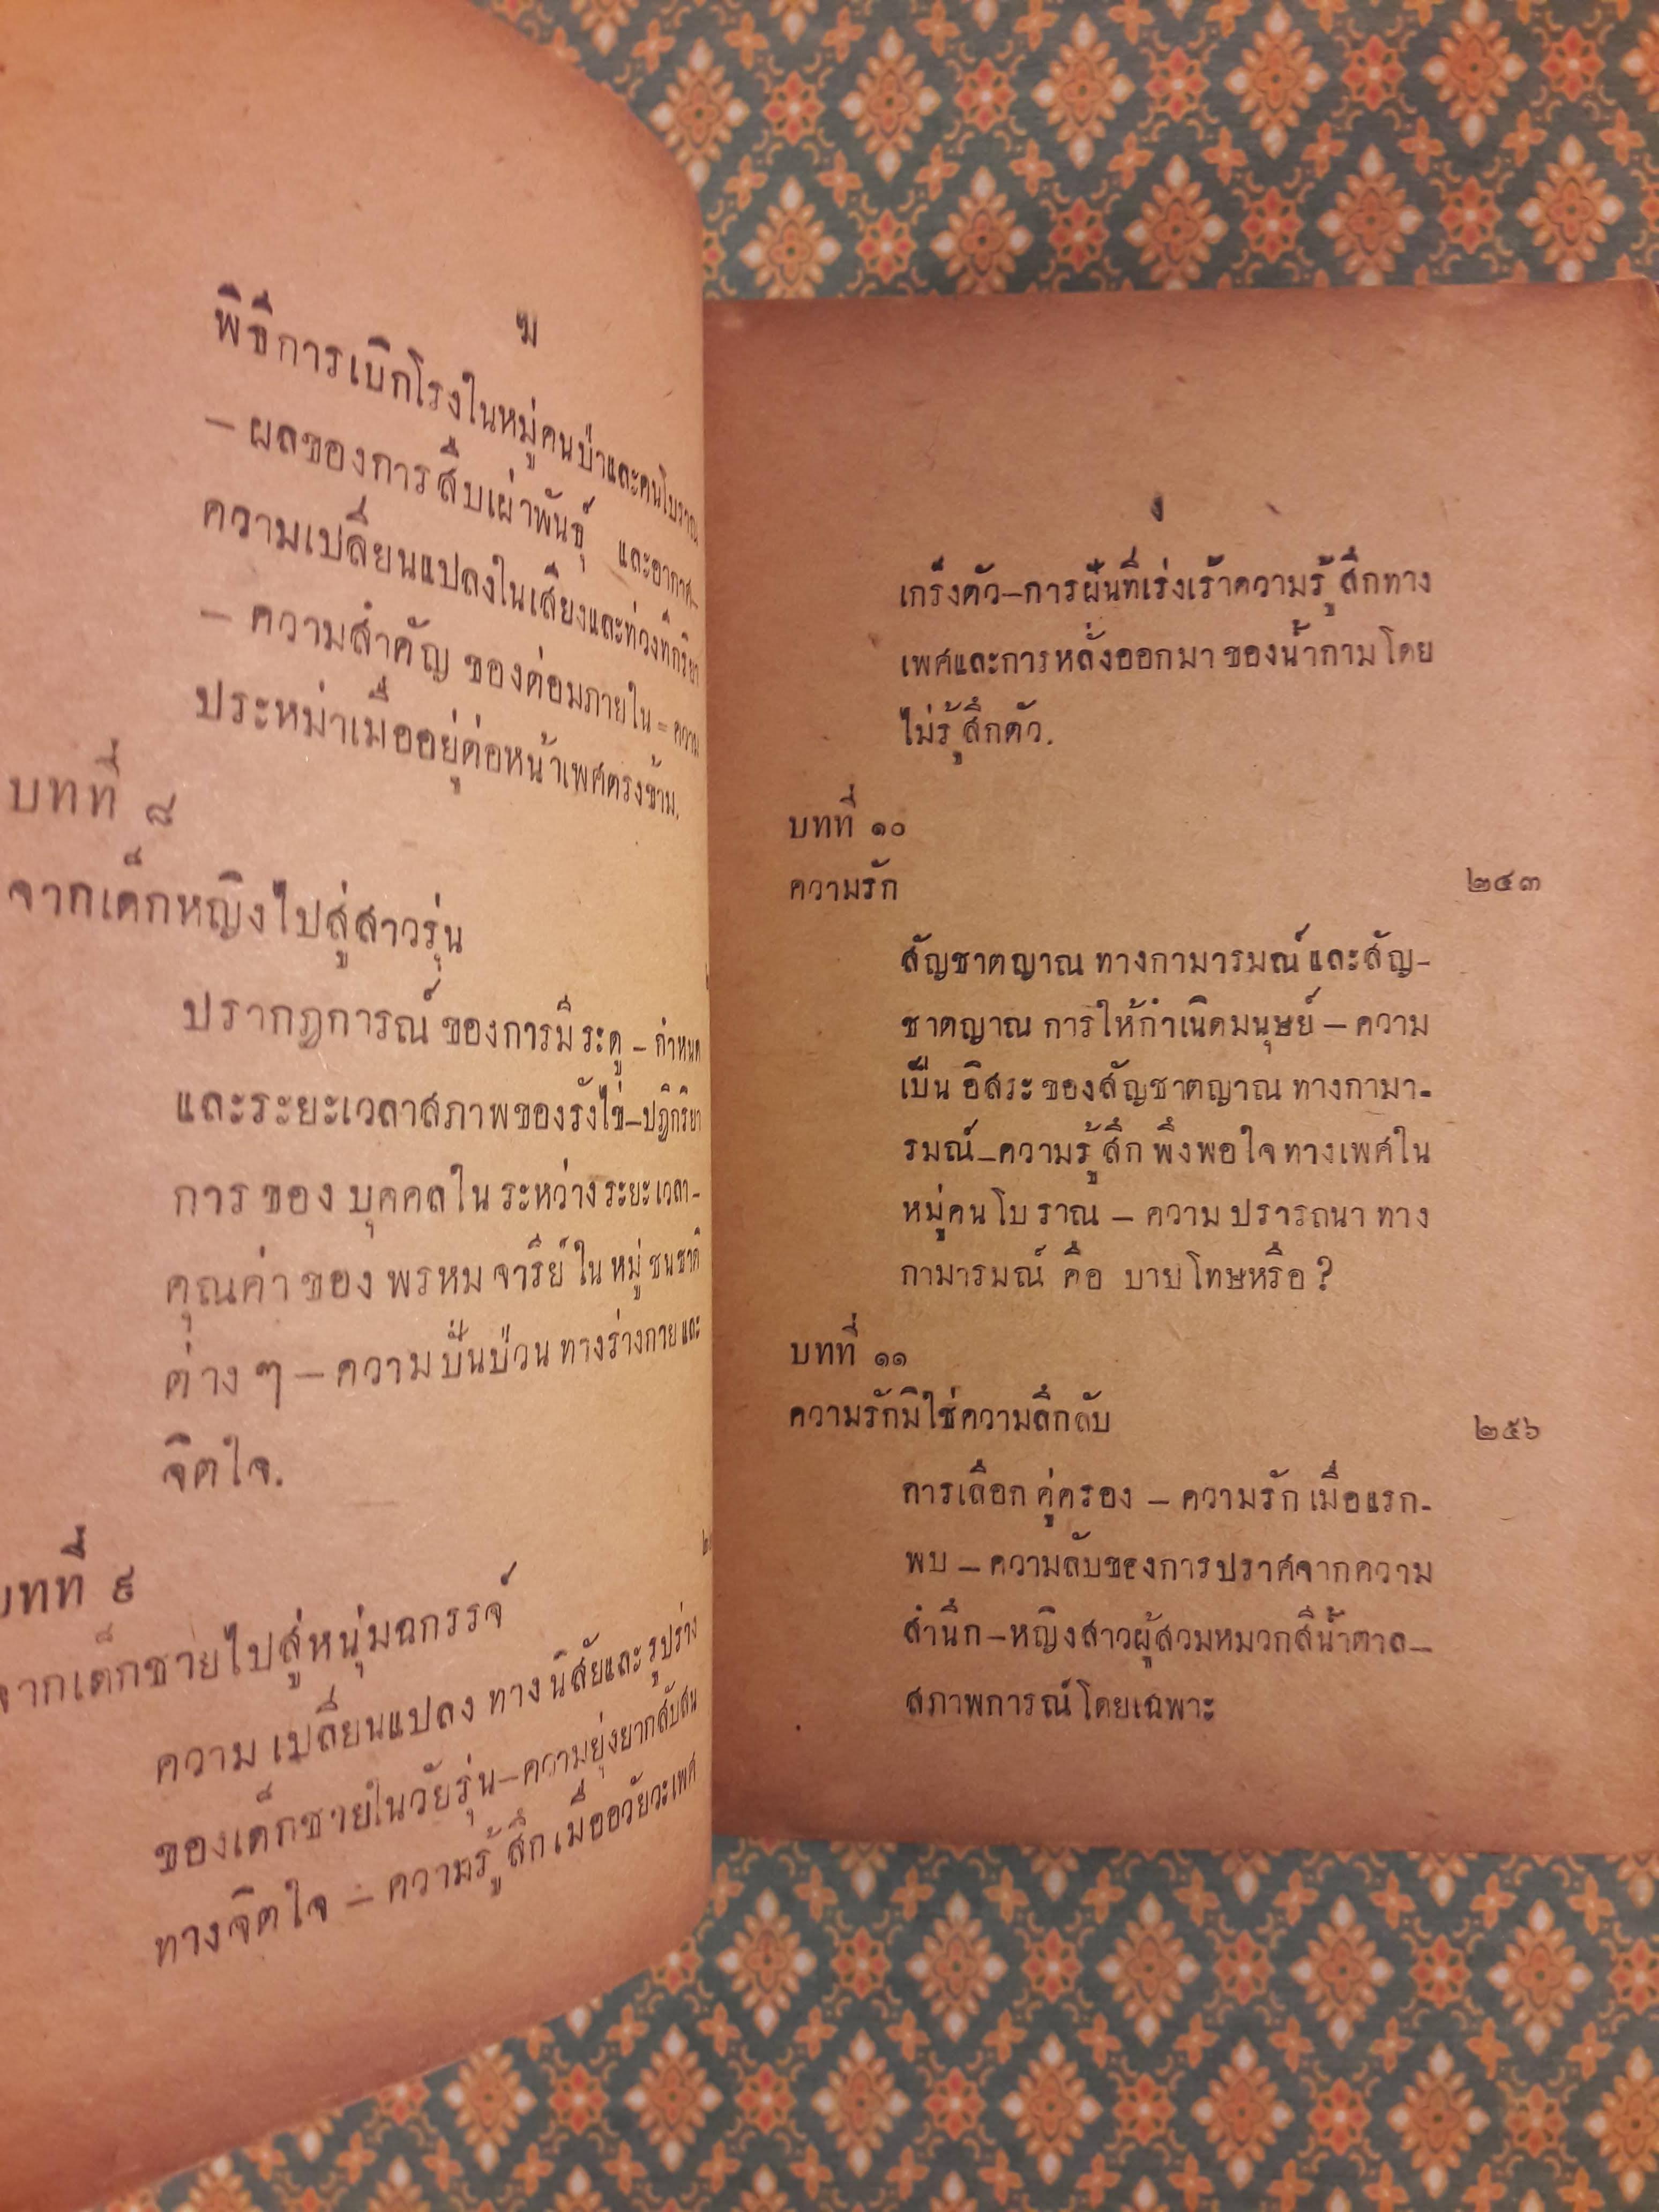 ฆ
พิธีการเบิกโรงในหมู่คนป่าและคนโบราณ
– ผลของการสืบเผ่าพันธุ์ และอากาศ–
ความเปลี่ยนแปลงในเสียงและท่วงทีกริยา
– ความสำคัญ ของต่อมภายใน – ความ
ประหม่าเมื่ออยู่ต่อหน้าเพศตรงข้าม.
บทที่ ๘
จากเด็กหญิงไปสู่สาวรุ่น
ปรากฎการณ์ ของการมี ระดู – กำหนด
และระยะเวลาสภาพของรังไข่–ปฏิกริยา
การ ของ บุคคลใน ระหว่าง ระยะ เวลา–
คุณค่า ของ พรหม จารีย์ ใน หมู่ ชนชาติ
ต่าง ๆ – ความ ปั่นป่วน ทางร่างกาย และ
จิตใจ.
บทที่ ๙
จากเด็กชายไปสู่หนุ่มฉกรรจ์
ความ เปลี่ยนแปลง ทาง นิสัยและ รูปร่าง
ของเด็กชายในวัยรุ่น–ความยุ่งยากสับสน
ทางจิตใจ – ความรู้สึก เมื่ออวัยวะเพศ
ง
เกร็งตัว–การฝันที่เร่งเร้าความรู้สึกทาง
เพศและการ หลั่งออกมา ของน้ำกาม โดย
ไม่รู้สึกตัว.
บทที่ ๑๐
ความรัก ๒๔๓
สัญชาตญาณ ทางกามารมณ์ และสัญ–
ชาตญาณ การให้กำเนิดมนุษย์ – ความ
เป็น อิสระ ของสัญชาตญาณ ทางกามา–
รมณ์–ความรู้สึก พึงพอใจ ทางเพศใน
หมู่คน โบราณ – ความ ปรารถนา ทาง
กามารมณ์ คือ บาปโทษหรือ ?
บทที่ ๑๑
ความรักมิใช่ความลึกลับ ๒๕๖
การเลือก คู่ครอง – ความรัก เมื่อแรก–
พบ – ความลับของการปราศจากความ
สำนึก–หญิงสาวผู้สวมหมวกสีน้ำตาล–
สภาพการณ์โดยเฉพาะ